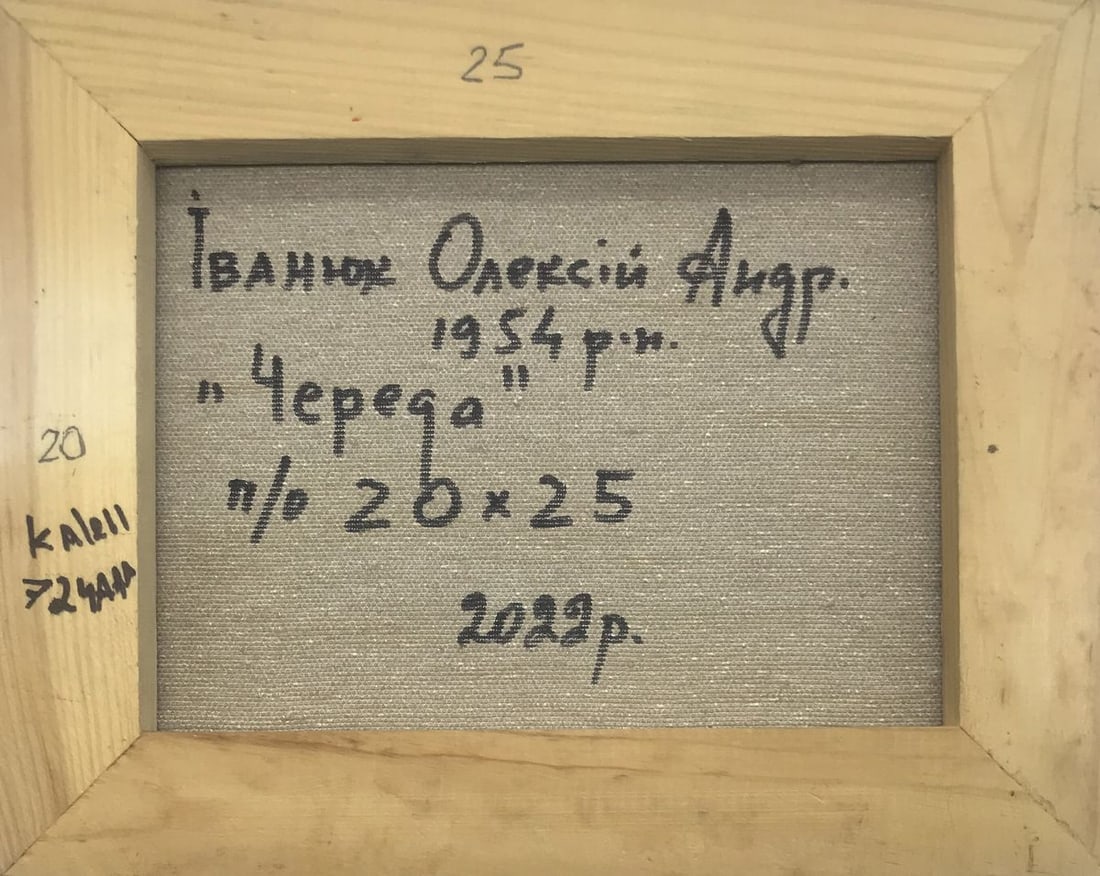 25
Іванюк Олексій Андр.
1954 р.н.
"Череда"
п/о 20×25
2022р.
20